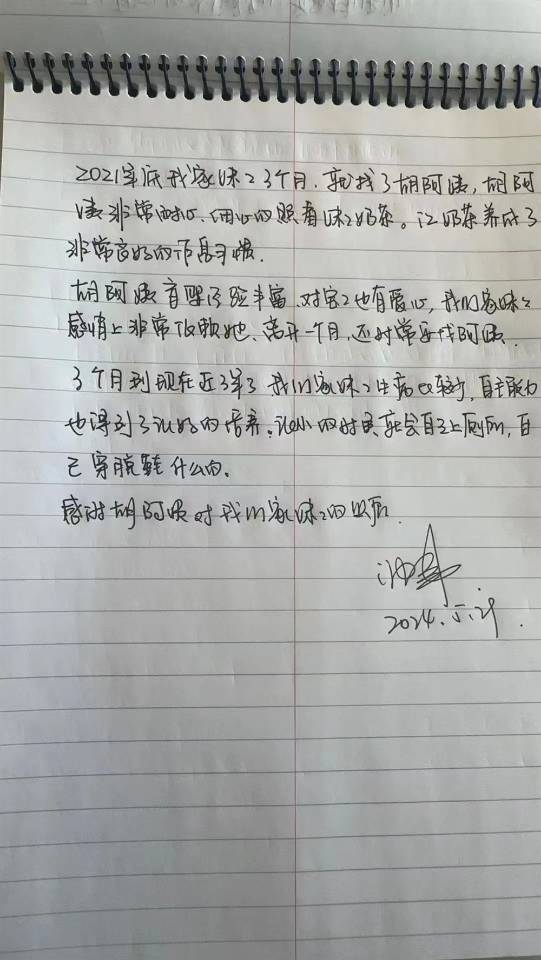 2021年底我家妹妹3个月,就找了胡阿姨,胡阿
姨非常耐心、细心的照看妹妹奶茶。让奶茶养成了
非常良好的作息习惯.
胡阿姨育婴经验丰富、对宝宝也有爱心,我们家妹妹
感情上非常依赖她、离开一个月,还时常要找阿姨.
3个月到现在近3年了我们家妹妹生病比较少,自主能力
也得到了很好的培养.很小的时候就会自己上厕所,自
己穿脱鞋什么的.
感谢胡阿姨对我们家妹妹的照顾.
2024.5.29.